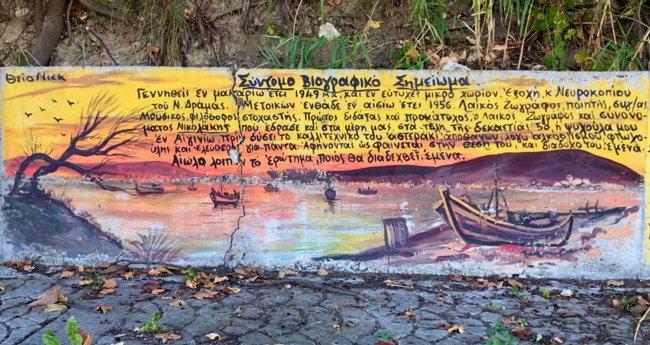 Θείο Nick
Σύντομο Βιογραφικό Σημείωμα.
Γεννηθείς εν μακαρίω έτει 1949 Μ.Χ. και εν ευτυχεί μικρό χωρίον, Εξοχή Κ. Νευροκοπίου
του Ν. Δράμας. Μετοικών ενθάδε εν αισίω έτει 1956. Λαϊκός Ζωγράφος, ποιητής,
Μουσικός, φιλόσοφος στοχαστής. Πρώτος διδάξας και προκάτοχος, ο λαϊκός Ζωγράφος και συνονό-
ματος Νικολάκης που έδρασε στα μέρη μας, στα τέλη της δεκαετίας 50, η ψυχούλα μου
εν Αιγινίω, πριν δύσει το καλλιτεχνικό του αστεράκι,
ύλη και ελώθερη για πάντα. Αφήνονται ως φαίνεται στην θέση του, και διάδοχό του, εμένα.
το ερώτημα, ποιος θα διαδεχθεί, εμένα.